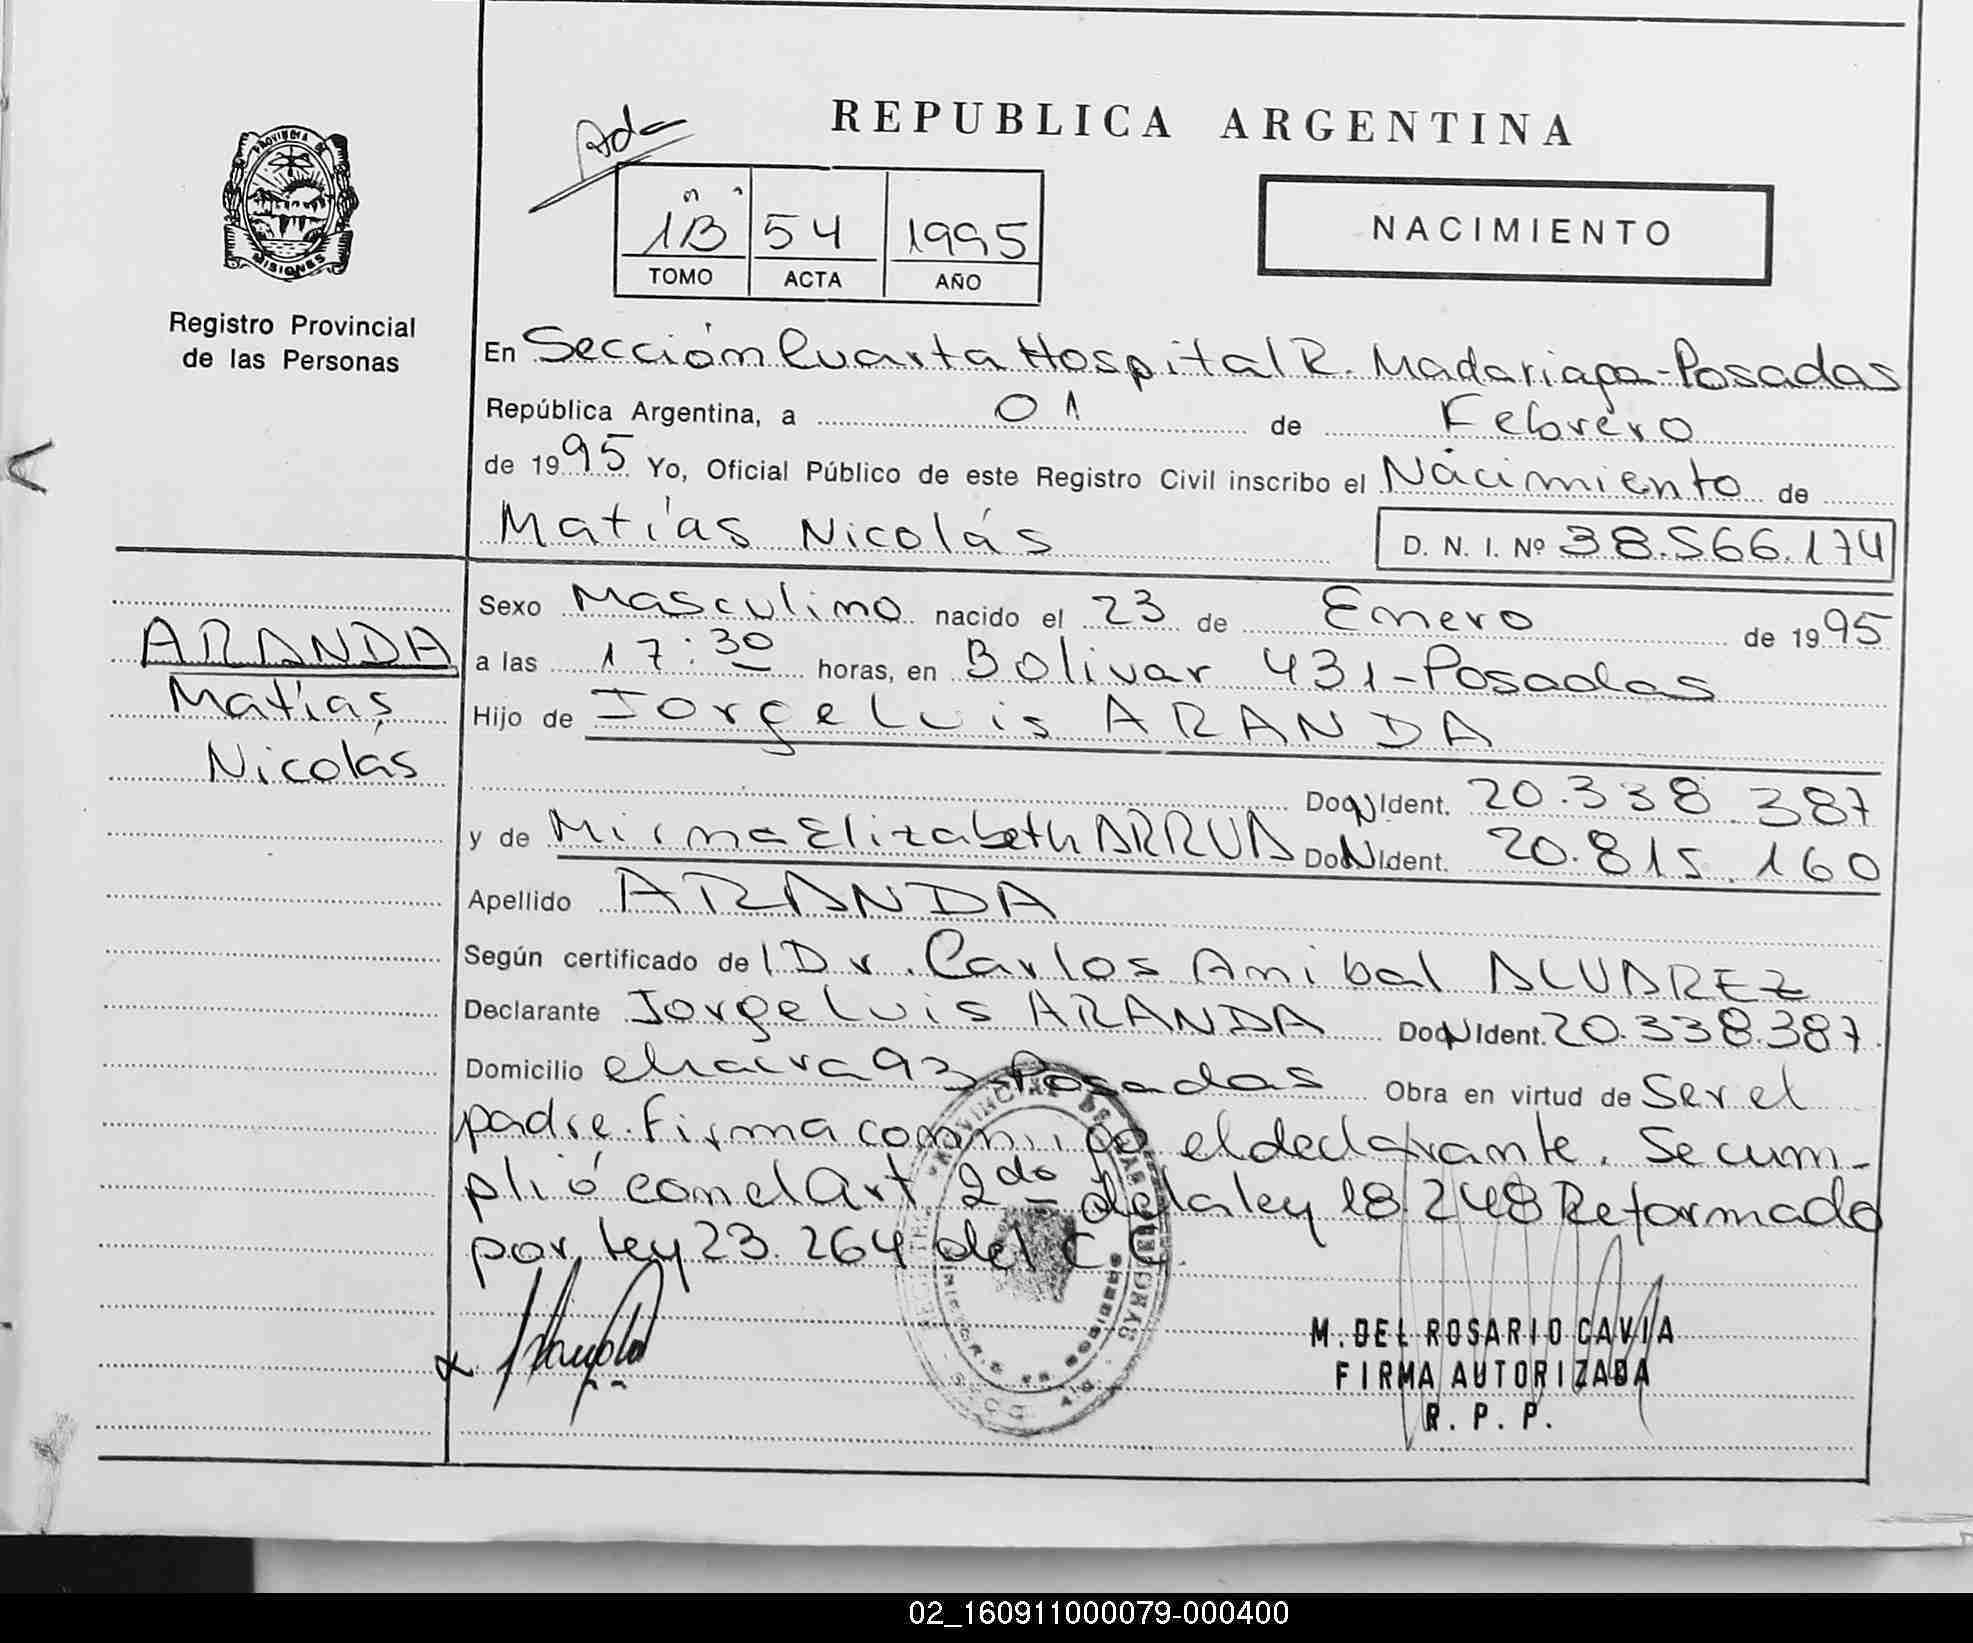 REPUBLICA ARGENTINA
PROVINCIA DE
MISIONES
Registro Provincial
de las Personas
1B 54 1995
TOMO ACTA AÑO
NACIMIENTO
En Sección Cuarta Hospital R. Madariaga - Posadas
República Argentina, a 01 de Febrero
de 1995 Yo, Oficial Público de este Registro Civil inscribo el Nacimiento de
Matías Nicolás D. N. I. Nº 38.566.174
ARANDA
Matías
Nicolás
Sexo Masculino nacido el 23 de Enero de 1995
a las 17:30 horas, en Bolivar 431 - Posadas
Hijo de Jorge Luis ARANDA
Doc N Ident. 20.338.387
y de Mirna Elizabeth ARRUA Doc N Ident. 20.815.160
Apellido ARANDA
Según certificado del Dr. Carlos Anibal ALVAREZ
Declarante Jorge Luis ARANDA Doc N Ident. 20.338.387.
Domicilio chacra 93 Posadas Obra en virtud de Ser el
padre. Firma conmigo el declarante. Se cum-
plió con el Art 2do de la ley 18.248 Reformado
por ley 23.264 del C C.
M. DEL ROSARIO CAVIA
FIRMA AUTORIZADA
R. P. P.
02_160911000079-000400